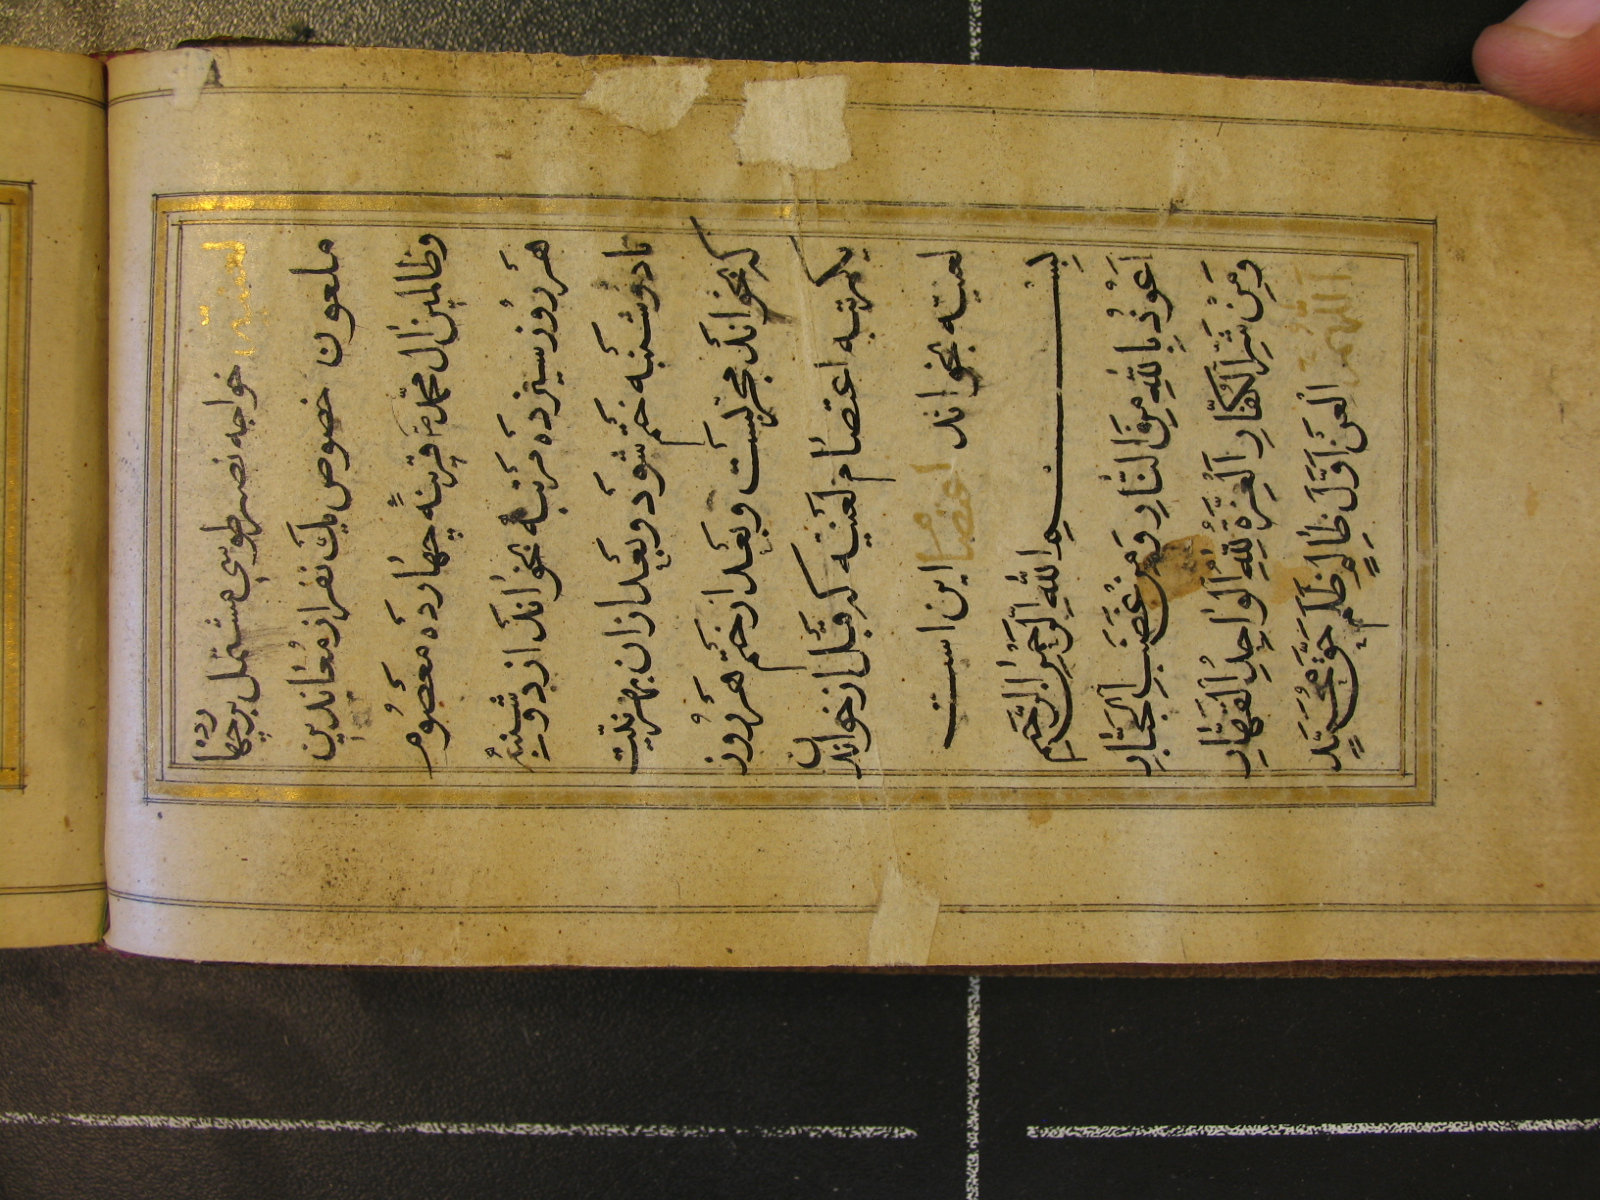 لعنیّه خواجه نصیر طوسی مشتمل بر چهارده
ملعون خصوص یک نفر از مُعاندین
وظالمین اٰل محمّد ص قرینهً چهارده معصُوم
هَر رُوز سیزده مَرتبه بخوانَند از دوشنبهٔ
تا دوُشنبَه ختم شوَد و بَعد ازان بهر نیّت
که بخوانند مجرّبست و بَعد از ختم هَر روُز
یکمرتبه اعتصام لعَنیه که قبل از خواندن
لعنیّه بخوانند اعتصام این است
بِسْمِ اللّٰهِ الرَّحْمٰنِ الرَّحیمِ
اَعُوذُ بِاللّٰهِ مِنَ النّارِ وَمِنْ غَضَبِ الْجَبّارِ
وَمِنْ شَرِّ الْکُفّارِ اَلْعِزَّةُ لِلّٰهِ الْوٰاحِدِ الْقَهّارِ
اَللّٰهُمَّ الْعَنْ اَوَّلَ ظٰالِمٍ ظَلَمَ حَقَّ مُحَمَّدٍ